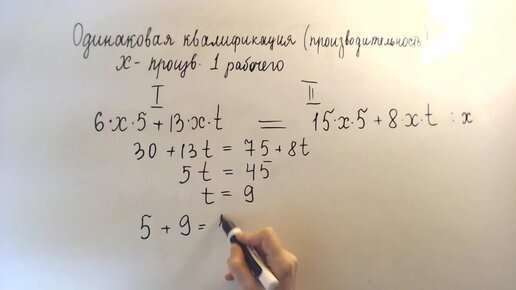 Одинаковая квалификация (производительность)
x - произв. 1 рабочего
I II
6·x·5 + 13·x·t = 15·x·5 + 8·x·t : x
30 + 13t = 75 + 8t
5t = 45
t = 9
5 + 9 =